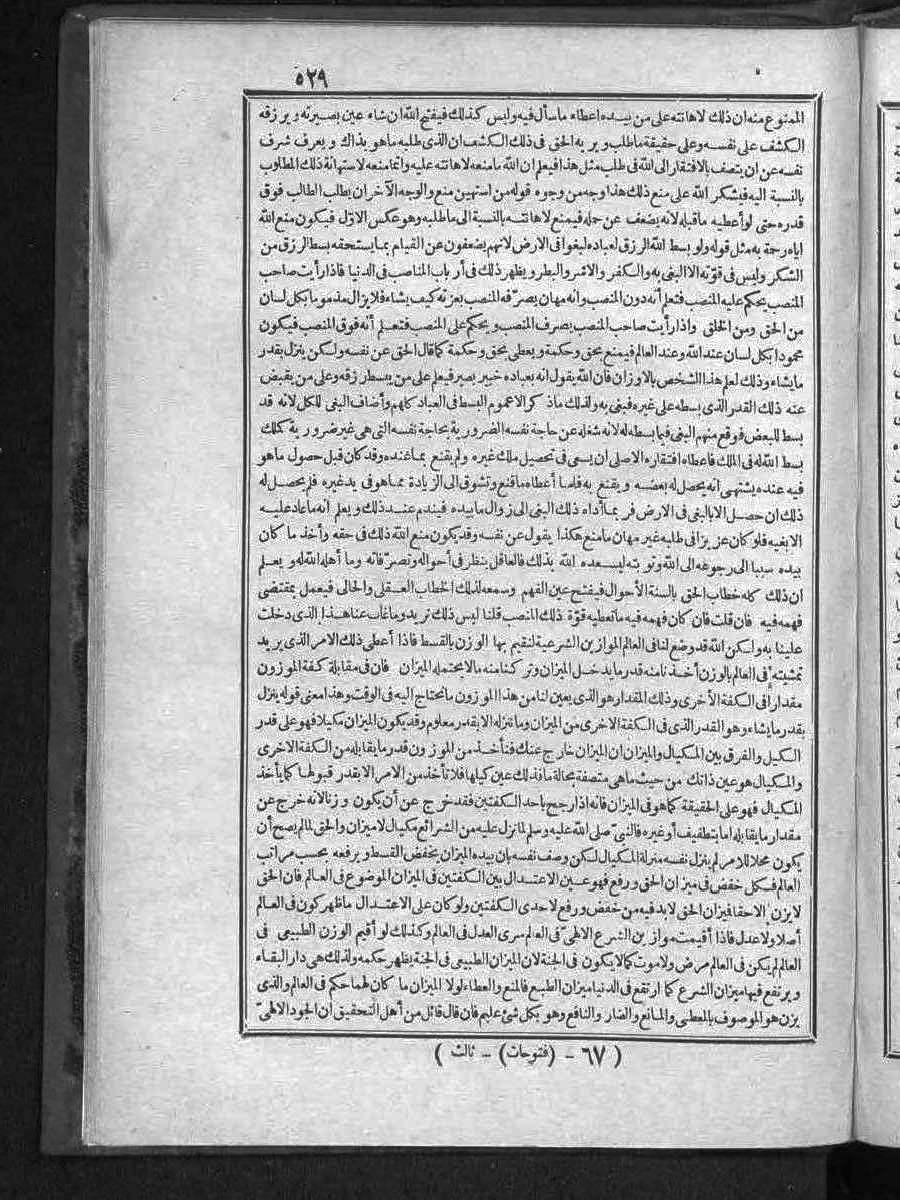 ٥٢٩
الممنوع منه ان ذلك لاهانته على من بيده اعطاء ما سأل فيه وليس كذلك فيفتح الله ان شاء عين بصيرته ويرزقه
الكشف على نفسه وعلى حقيقة ما طلب ويريه الحق فى ذلك الكشف ان الذى طلبه ما هو بذاك ويعرف شرف
نفسه عن ان يتصف بالافتقار الى الله فى طلب مثل هذا فيعلم ان الله ما منعه لاهانته عليه وانما منعه لاستهانة ذلك المطلوب
بالنسبة اليه فيشكر الله على منع ذلك هذا وجه من وجوه قوله من استهين منع والوجه الآخر ان يطلب الطالب فوق
قدره حتى لو أعطيه ما قبله لانه يضعف عن حمله فيمنع لاهانته بالنسبة الى ما طلبه وهو عكس الاوّل فيكون منع الله
اياه رحمة به مثل قوله ولو بسط الله الرزق لعباده لبغوا فى الارض لانهم يضعفون عن القيام بما يستحقه بسط الرزق من
الشكر وليس فى قوّته الا البغى به والكفر والاشر والبطر ويظهر ذلك فى أرباب المناصب فى الدنيا فاذا رأيت صاحب
المنصب يحكم عليه المنصب فتعلم أنه دون المنصب وانه مهان يصرّفه المنصب بعزته كيف يشاء فلا يزال مذموما بكل لسان
من الحق ومن الخلق واذا رأيت صاحب المنصب يصرف المنصب ويحكم على المنصب فتعلم أنه فوق المنصب فيكون
محمودا بكل لسان عند الله وعند العالم فيمنع بحق وحكمة ويعطى بحق وحكمة كما قال الحق عن نفسه ولكن ينزل بقدر
ما يشاء وذلك لعلم هذا الشخص بالاوزان فان الله يقول انه بعباده خبير بصير فيعلم على من يبسط رزقه وعلى من يقبض
عنه ذلك القدر الذى بسطه على غيره فيبغى به ولذلك ما ذكر الا عموم البسط فى العباد كلهم وأضاف البغى للكل لانه قد
بسط للبعض فوقع منهم البغى فيما بسطه له لانه شغله عن حاجة نفسه الضرورية بحاجة نفسه التى هى غير ضرورية كملك
بسط الله له فى الملك فاعطاه افتقاره الاصلى ان يسعى فى تحصيل ملك غيره ولم يقنع بما عنده وقد كان قبل حصول ما هو
فيه عنده يشتهى انه يحصل له بعضه ويقنع به فلما أعطاه ما قنع وتشوق الى الزيادة مما هو فى يد غيره فلم يحصل له
ذلك ان حصل الا بالبغى فى الارض فربما أداه ذلك البغى الى زوال ما بيده فيندم عند ذلك ويعلم انه ما عاد عليه
الا بغيه فلو كان عزيزا فى طلبه غير مهان ما منع هكذا يقول عن نفسه وقد يكون منع الله ذلك فى حقه وأخذ ما كان
بيده سببا الى رجوعه الى الله وتوبته ليسعده الله بذلك فالعاقل ينظر فى أحواله وتصرّفاته وما أهله الله له ويعلم
ان ذلك كله خطاب الحق بالسنة الأحوال فيفتح عين الفهم وسمعه لذلك الخطاب العقلى والحالى فيعمل بمقتضى
فهمه فيه فان قلت فان كان فهمه فيه ما تعطيه قوّة ذلك المنصب قلنا ليس ذلك نريد وما غاب عنا هذا الذى دخلت
علينا به ولكن الله قد وضع لنا فى العالم الموازين الشرعية لنقيم بها الوزن بالقسط فاذا أعطى ذلك الامر الذى يريد
تمشيته فى العالم بالوزن أخذنا منه قدر ما يدخل الميزان وتركنا منه ما لا يحتمله الميزان فان فى مقابلة كفة الموزون
مقدارا فى الكفة الأخرى وذلك المقدار هو الذى يعين لنا من هذا الموزون ما نحتاج اليه فى الوقت وهذا معنى قوله ينزل
بقدر ما يشاء وهو القدر الذى فى الكفة الاخرى من الميزان وما ننزله الا بقدر معلوم وقد يكون الميزان مكيلا فهو على قدر
الكيل والفرق بين المكيال والميزان ان الميزان خارج عنك فنأخذ من الموزون قدر ما يقابله من الكفة الاخرى
والمكيال هو عين ذاتك من حيث ما هى متصفة بحالة ما فذلك عين كيلها فلا تأخذ من الامر الا بقدر قبولها كما يأخذ
المكيال فهو على الحقيقة كما هو فى الميزان فانه اذا رجح باحد الكفتين فقد خرج عن أن يكون وزنا لانه خرج عن
مقدار ما يقابله اما بتطفيف أو غيره فالنبىّ صلى الله عليه وسلم لما نزل عليه من الشرائع مكيال لا ميزان والحق لما لم يصح أن
يكون محلا للامر لم ينزل نفسه منزلة المكيال لكن وصف نفسه بان بيده الميزان يخفض القسط ويرفعه بحسب مراتب
العالم فكل خفض فى ميزان الحق ورفع فهو عين الاعتدال بين الكفتين فى الميزان الموضوع فى العالم فان الحق
لا يزن الا حقا فيزان الحق لابد فيه من خفض ورفع لاحدى الكفتين ولو كان على الاعتدال ما ظهر كون فى العالم
أصلا ولا عدل فاذا أقيمت موازين الشرع الالهىّ فى العالم سرى العدل فى العالم وكذلك لو أقيم الوزن الطبيعى فى
العالم لم يكن فى العالم مرض ولا موت كما لا يكون فى الجنة لان الميزان الطبيعى فى الجنة يظهر حكمه ولذلك هى دار البقاء
ويرتفع فيها ميزان الشرع كما ارتفع فى الدنيا ميزان الطبع فالمنع والعطاء لولا الميزان ما كان لهما حكم فى العالم والذى
يزن هو الموصوف بالمعطى والمانع والضار والنافع وهو بكل شئ عليم فان قال قائل من أهل التحقيق أن الجود الالهىّ
( ٦٧ - (فتوحات) - ثالث )